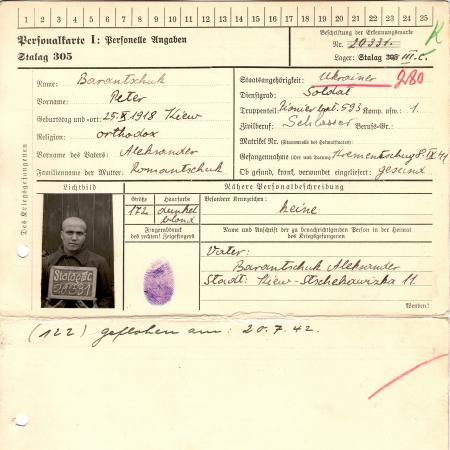 1 2 3 4 5 6 7 8 9 10 11 12 13 14 15 16 17 18 19 20 21 22 23 24 25
Personalkarte I: Personelle Angaben
Stalag 305
Beschriftung der Erkennungsmarke
Nr. 20331.
Lager: Stalag 305 III C.
K
Des Kriegsgefangenen
Name: Barantschuk
Vorname: Peter
Geburtstag und -ort: 25.X.1918 Kiew
Religion: orthodox
Vorname des Vaters: Aleksander
Familienname der Mutter: Romantschuk
Staatsangehörigkeit: Ukrainer
Dienstgrad: Soldat
Truppenteil: Pionierbat. 593 Komp. usw.: 1.
Zivilberuf: Schlosser Berufs-Gr.:
Matrikel Nr. (Stammrolle des Heimatstaates):
Gefangennahme (Ort und Datum): Krementschug 8.IX.41
Ob gesund, krank, verwundet eingeliefert: gesund
Lichtbild
Nähere Personalbeschreibung
Größe
Haarfarbe
Besondere Kennzeichen:
172
dunkel blond
keine
Fingerabdruck
des rechten! Zeigefingers
Name und Anschrift der zu benachrichtigenden Person in der Heimat
des Kriegsgefangenen
Vater:
Barantschuk Aleksander
Stadt: Kiew-Stschekawizka 11.
Wenden!
(122) geflohen am: 20.7.42.